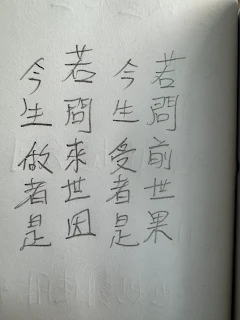 若問前世果
今生受者是
若問來世因
今生做者是